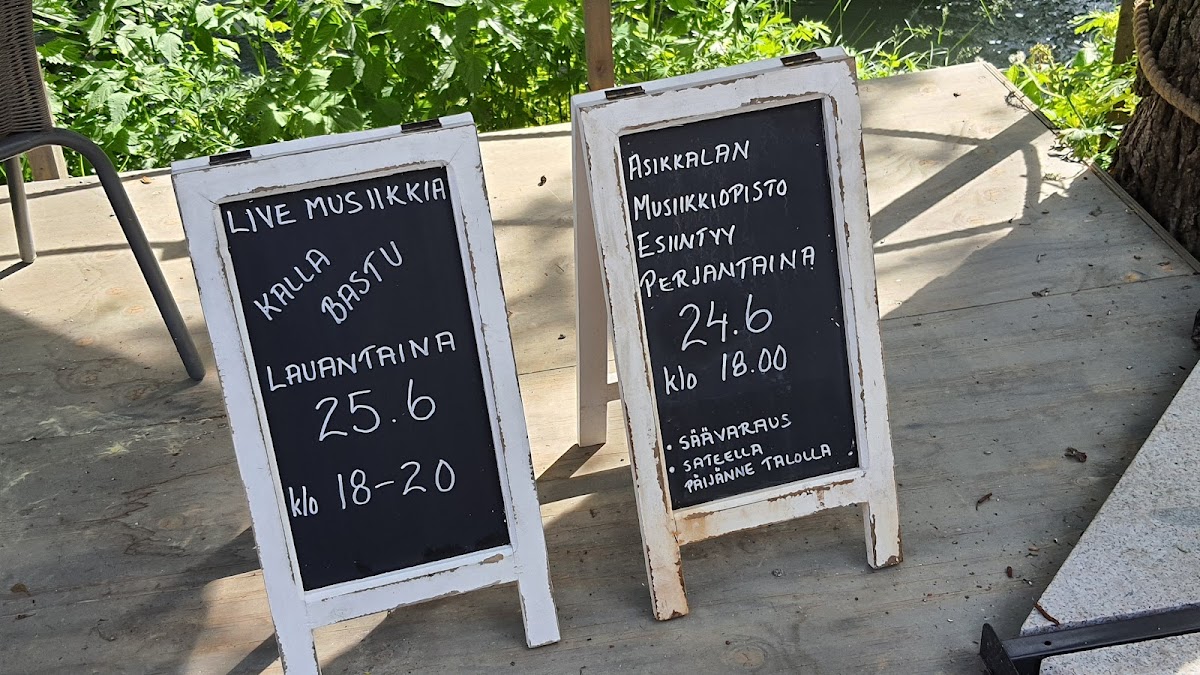 LIVE MUSIIKKIA
KALLA
BASTU
LAUANTAINA
25.6
klo 18-20
ASIKKALAN
MUSIIKKIOPISTO
ESIINTYY
PERJANTAINA
24.6
klo 18.00
• SÄÄVARAUS
• SATEELLA
PÄIJÄNNE TALOLLA.